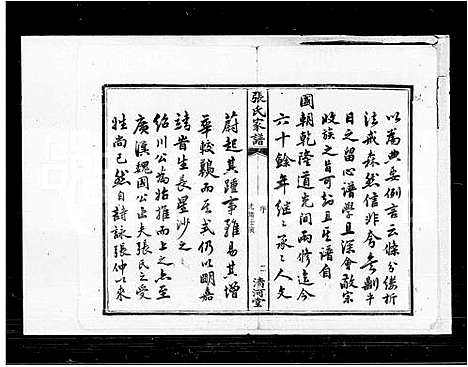 以為典要例言云條分縷析
法戒森然信非參其剞半
日之留心譜學且深會敬宗
收族之旨可知且玉譜自
國朝乾隆道光間兩修迄今
六十餘年繼繼承承人文
張氏家譜
序
二
清河堂
蔚起其踵事雖易其增
華較難而長式仍以明嘉
靖昔生長星沙之
紹川公為始推而上之至
廣漢魏國公出夫張氏之受
姓尚已然自詩詠張仲以來